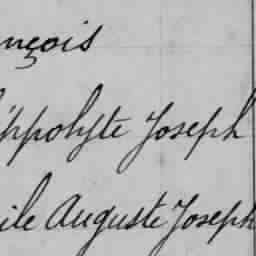 nçois
ippolyte Joseph
ile Auguste Joseph